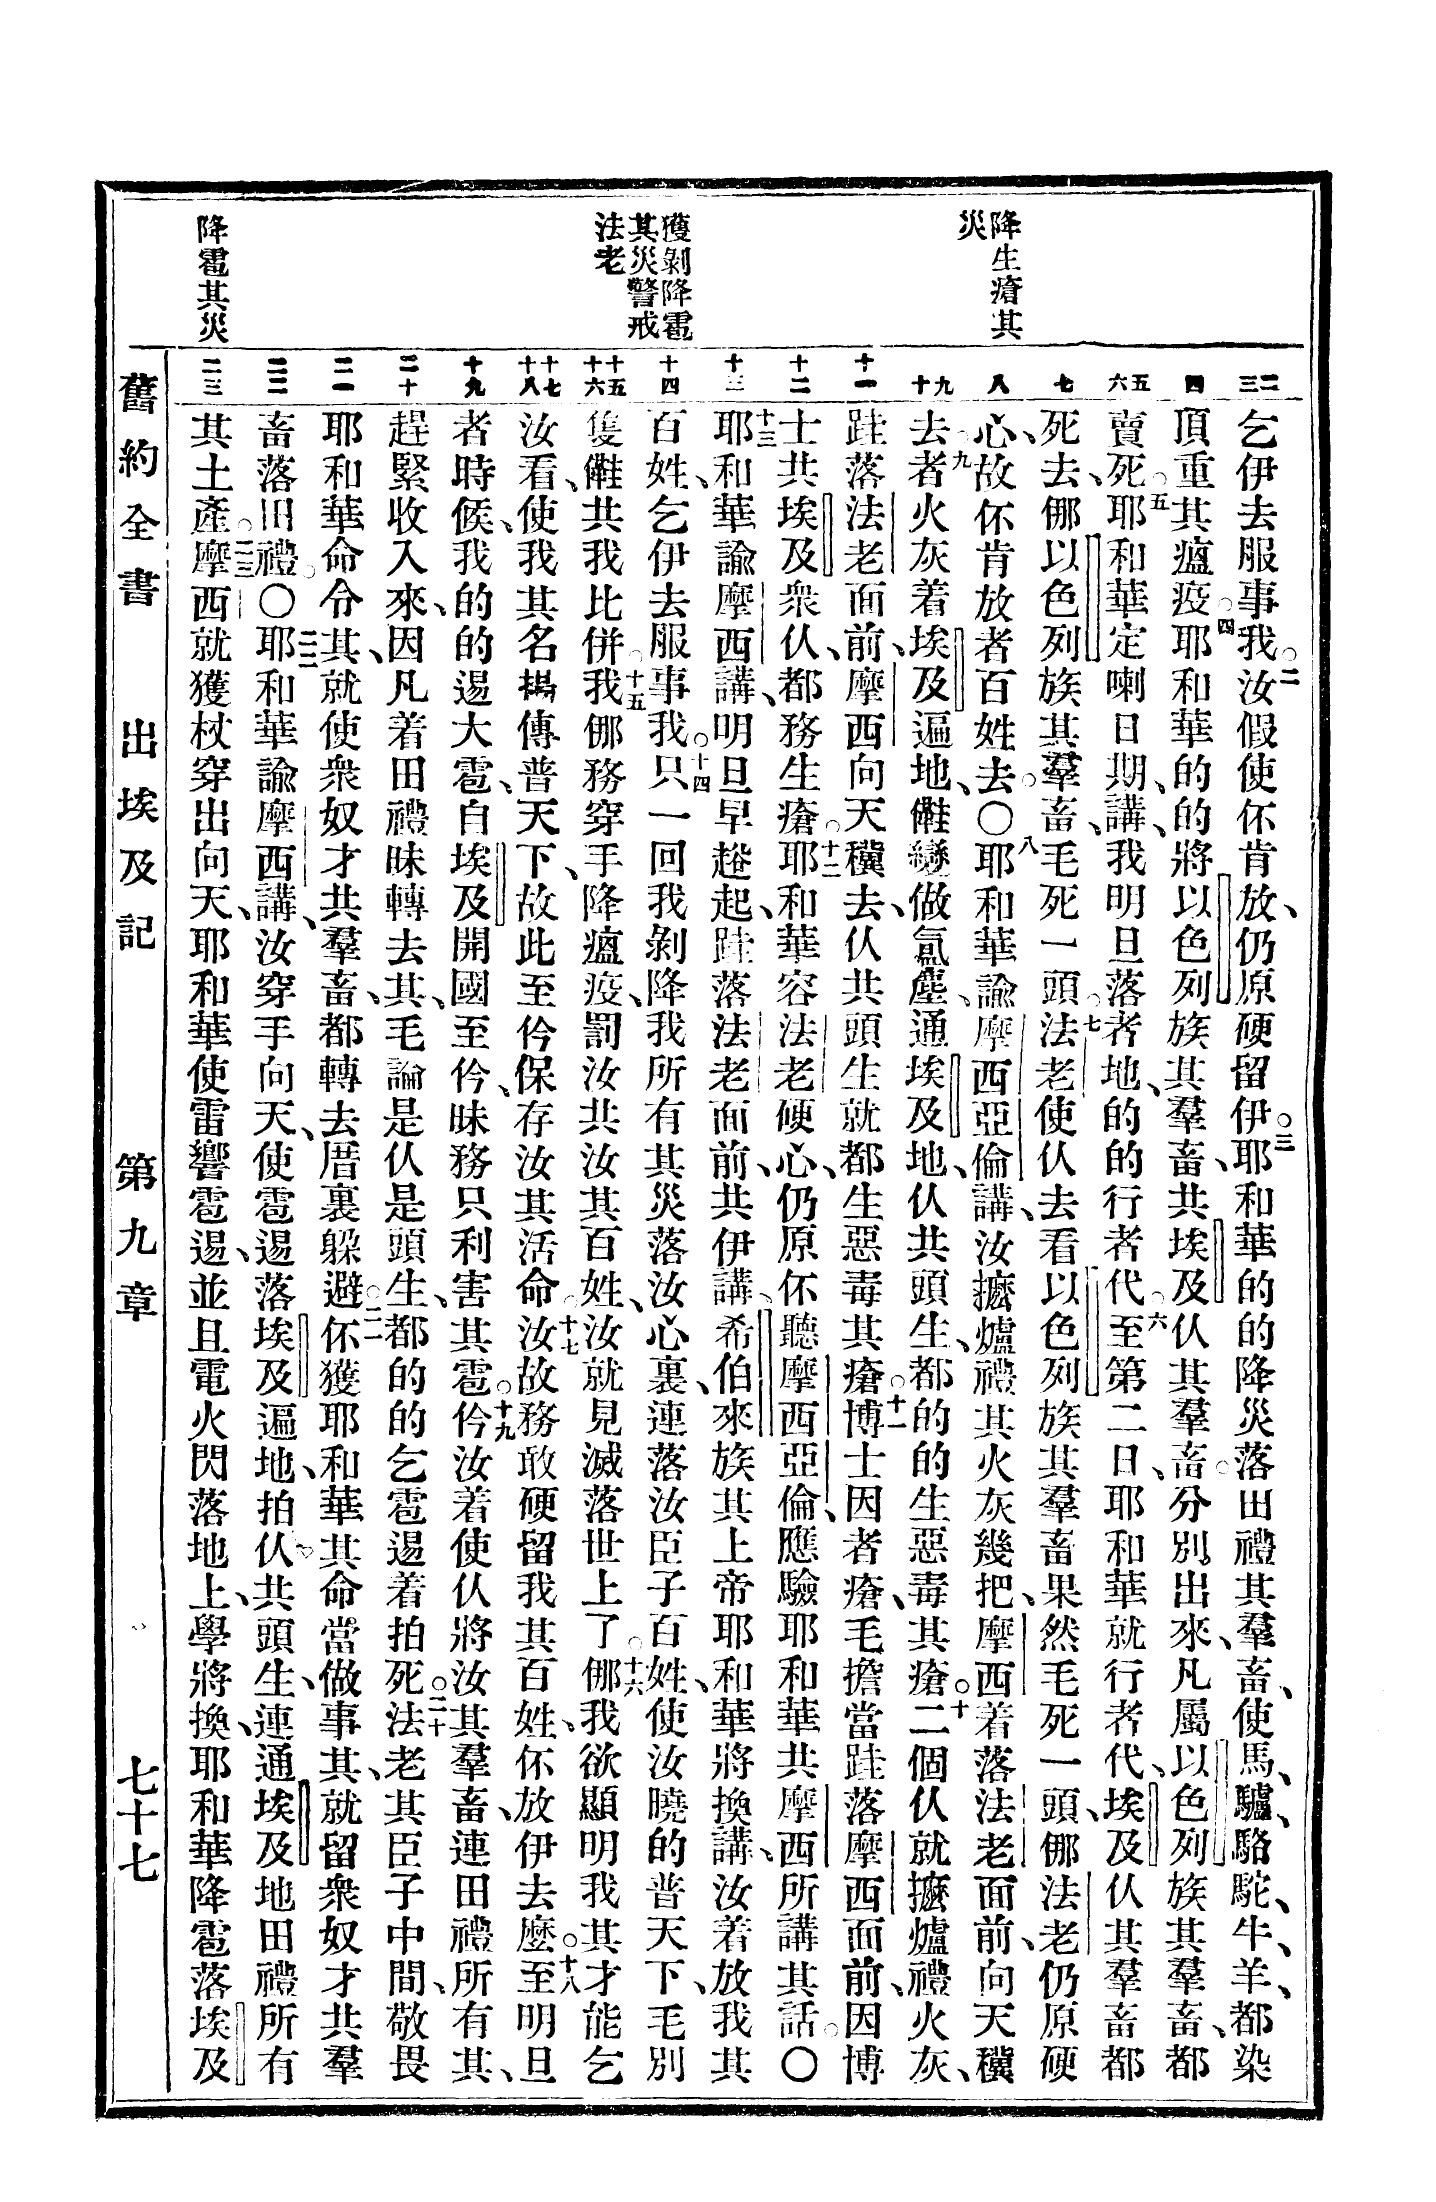 降生瘡其
災
獲剝降雹
其災警戒
法老
降雹其災
二三
四
五六
七
八
九十
十一
十二
十三
十四
十五十六
十七十八
十九
二十
二一
二二
二三
乞伊去服事我。二汝假使伓肯放、仍原硬留伊。三耶和華的的降災落田禮其羣畜、使馬、驢、駱駝、牛、羊、都染
頂重其瘟疫。四耶和華的的將以色列族其羣畜、共埃及仈其羣畜。分別出來、凡屬以色列族其羣畜、都
賣死。五耶和華定喇日期、講、我明旦落者地、的的行者代。六至第二日、耶和華就行者代、埃及仈其羣畜都
死去、㑚以色列族其羣畜、毛死一頭。七法老使仈去看以色列族其羣畜、果然毛死一頭、㑚法老仍原硬
心、故伓肯放者百姓去。〇八耶和華諭摩西亞倫講、汝搋爐禮其火灰幾把、摩西着落法老面前、向天穰
去。九者火灰着埃及遍地、儺變做氣塵、通埃及地、仈共頭生、都的的生惡毒其瘡。十二個仈就搋爐禮火灰、
跬落法老面前、摩西向天穰去、仈共頭生就都生惡毒其瘡。十一博士因者瘡、毛擔當跬落摩西面前、因博
士共埃及衆仈、都務生瘡。十二耶和華容法老硬心、仍原伓聽摩西亞倫、應驗耶和華共摩西所講其話。〇
十三耶和華諭摩西講、明旦早趒起、跬落法老面前、共伊講、希伯來族其上帝耶和華將換講、汝着放我其
百姓、乞伊去服事我。十四只一回我剝降我所有其災落汝心裏、連落汝臣子百姓、使汝曉的普天下、毛別
隻儺共我比併。十五我㑚務穿手降瘟疫、罰汝共汝其百姓、汝就見滅落世上了。十六㑚我欲顯明我其才能乞
汝看、使我其名揚傳普天下、故此至仱保存汝其活命。十七汝故務敢硬留我其百姓、伓放伊去麼。十八至明旦
者時候、我的的逿大雹、自埃及開國至仱、昧務只利害其雹。十九仱汝着使仈將汝其羣畜、連田禮所有其、
趕緊收入來、因凡着田禮昧轉去其、毛論是仈是頭生、都的的乞雹逿着拍死。二十法老其臣子中間、敬畏
耶和華命令其、就使衆奴才共羣畜、都轉去厝裏躲避。二一伓獲耶和華其命當做事其、就留衆奴才共羣
畜落田禮。〇二二耶和華諭摩西講、汝穿手向天、使雹逿落埃及遍地、拍仈共頭生、連通埃及地田禮所有
其土產。二三摩西就獲杖穿出向天、耶和華使雷響雹逿、並且電火閃落地上、學將換、耶和華降雹落埃及
舊約全書　出埃及記　第九章　七十七